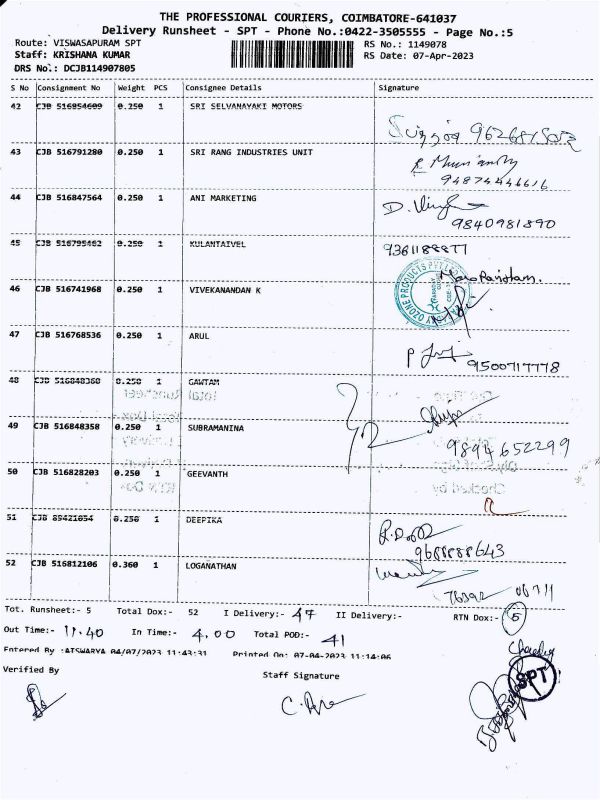 THE PROFESSIONAL COURIERS, COIMBATORE-641037
Delivery Runsheet - SPT - Phone No.:0422-3505555 - Page No.:5
Route: VISWASAPURAM SPT
RS No.: 1149078
Staff: KRISHANA KUMAR
RS Date: 07-Apr-2023
DRS No.: DCJB114907805
S No Consignment No Weight PCS Consignee Details Signature
42 CJB 516854609 0.250 1 SRI SELVANAYAKI MOTORS
43 CJB 516791280 0.250 1 SRI RANG INDUSTRIES UNIT
94874446616
44 CJB 516847564 0.250 1 ANI MARKETING
9840981890
45 CJB 516795462 0.250 1 KULANTAIVEL
9361188877
46 CJB 516741968 0.250 1 VIVEKANANDAN K
47 CJB 516768536 0.250 1 ARUL
9500717778
48 CJB 516848360 0.250 1 GAWTAM
49 CJB 516848358 0.250 1 SUBRAMANINA
9894652299
50 CJB 516828203 0.250 1 GEEVANTH
51 CJB 89421054 0.250 1 DEEPIKA
9688888643
52 CJB 516812106 0.360 1 LOGANATHAN
Tot. Runsheet:- 5 Total Dox:- 52 I Delivery:- 47 II Delivery:- RTN Dox:- 5
Out Time:- 11.40 In Time:- 4.00 Total POD:- 41
Entered By :AISWARYA 04/07/2023 11:43:31 Printed On: 07-04-2023 11:14:06
Verified By
Staff Signature
SPT